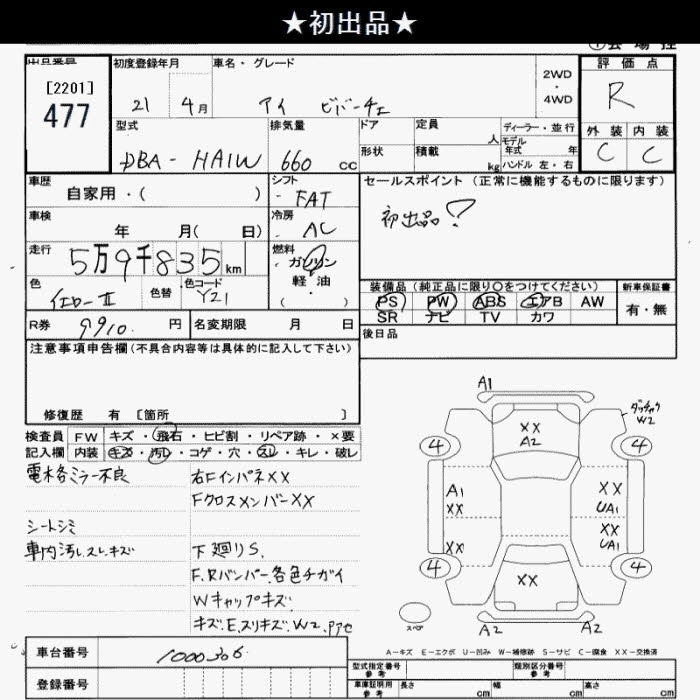 ★初出品★
出品番号
[2201]
477
初度登録年月
21 4月
車名・グレード
アイ ビバーチェ
2WD
・
4WD
評価点
R
外装 内装
C C
型式
DBA-HA1W
排気量
660 cc
ドア
形状
定員 人
積載 kg
ディーラー・並行
モデル年式 年
ハンドル 左・右
車歴
自家用・( )
シフト
FAT
車検
年 月( 日)
冷房
AC
走行
5万9千835km
燃料
ガソリン
軽油
( )
色
イエローII
色替
色コード
Y21
R券 9910. 円
名変期限 月 日
セールスポイント (正常に機能するものに限ります)
初出品!
装備品 (純正品に限り○をつけてください)
PS PW ABS エアB AW
SR ナビ TV カワ
新車保証書
有・無
後日品
注意事項申告欄(不具合内容等は具体的に記入して下さい)
修復歴 有 [箇所 ]
検査員 FW キズ・飛石・ヒビ割・リペア跡・×要
記入欄 内装 キズ・汚レ・コゲ・穴・スレ・キレ・破レ
電格ミラー不良
シートシミ
車内汚レ.スレ.キズ
右FインパネXX
FクロスメンバーXX
下廻りS.
F.Rバンパー.各色チガイ
Wキャップキズ.
キズ.E.スリキズ.W2.
A1
XX
A2
ダッチャクW2
4
4
A1
XX
XX
XX
UA1
XX
UA1
4
4
XX
スペア
A2
A2
A-キズ E-エクボ U-凹み W-補修跡 S-サビ C-腐食 XX-交換済
車台番号 1000306
登録番号
型式指定番号 参考
類別区分番号 参考
車庫証明用 参考
長さ cm
幅 cm
高さ cm